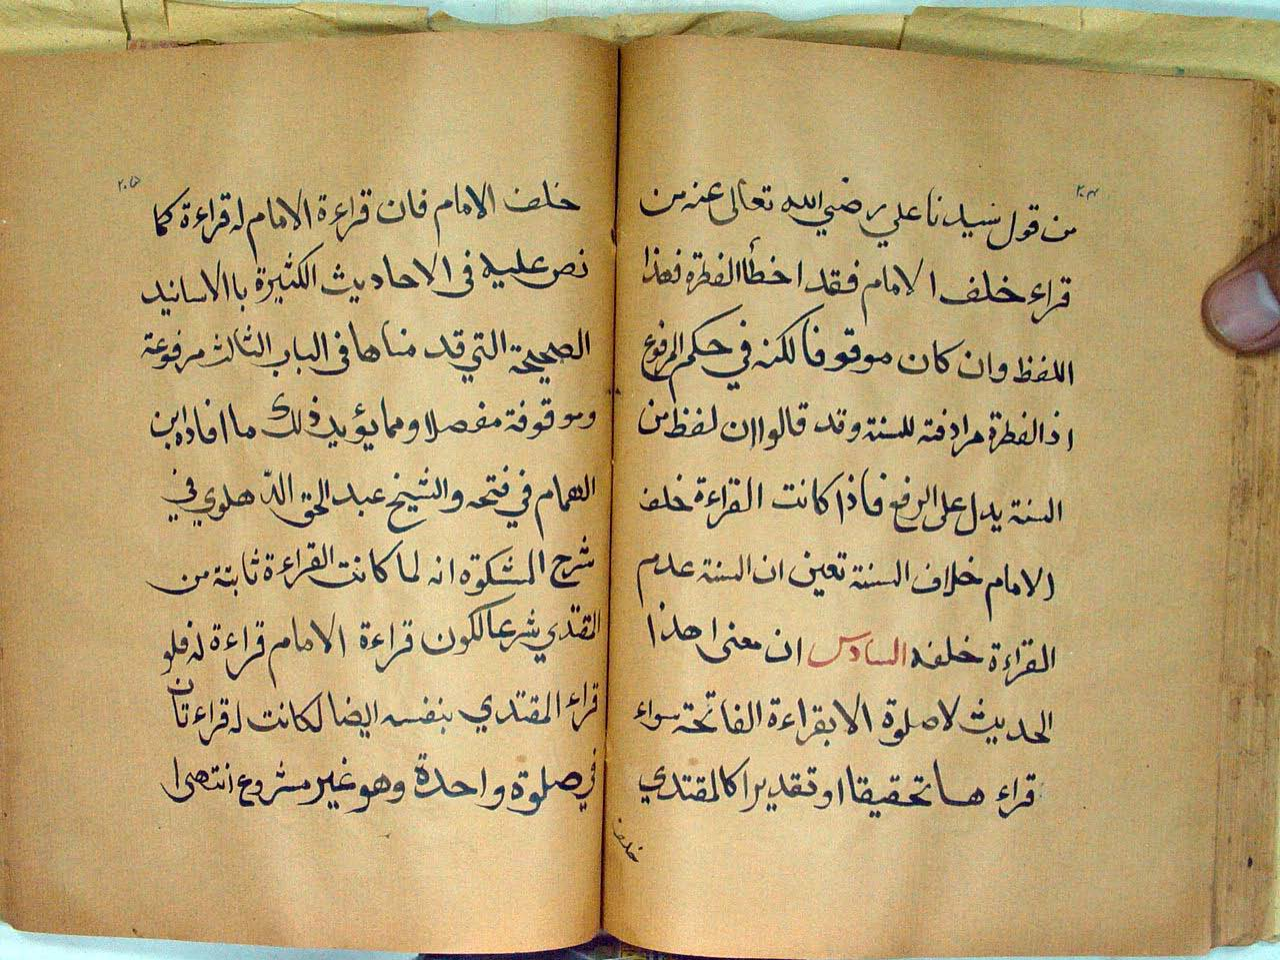 ٢٠٤
من قول سيدنا علي رضي الله تعالى عنه من
قراء خلف الامام فقد اخطأ الفطرة فهذا
اللفظ وان كان موقوفا لكنه في حكم المرفوع
اذ الفطرة مرادفة للسنة وقد قالوا ان لفظ من
السنة يدل على الرفع فاذا كانت القراءة خلف
الامام خلاف السنة تعين ان السنة عدم
القراءة خلفه السادس ان معنى هذا
الحديث لا صلوة الا بقراءة الفاتحة سواء
قراء ها تحقيقا او تقديرا كالمقتدي
خلف
٢٠٥
خلف الامام فان قراءة الامام له قراءة كما
نص عليه فى الاحاديث الكثيرة با الاسانيد
الصحيحة التي قد مناها فى الباب الثالث مرفوعة
وموقوفة مفصلا ومما يؤيد ذلك ما افاده ابن
الهمام في فتحه والشيخ عبد الحق الدهلوي في
شرح المشكوة انه لما كانت القراءة ثابتة من
المقتدي شرعا لكون قراءة الامام قراءة له فلو
قراء المقتدي بنفسه ايضا لكانت له قراءتان
في صلوة واحدة وهو غير مشروع انتهى ا